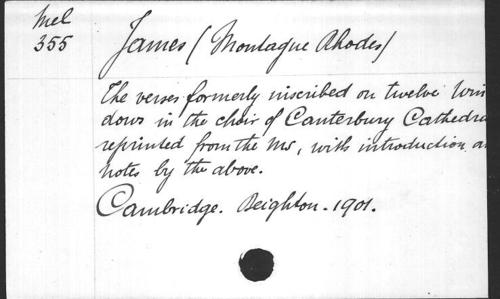 Mel
355
James (Montague Rhodes)
The verses formerly inscribed on twelve Win
dows in the choir of Canterbury Cathedra
reprinted from the Ms, with introduction a
notes by the above.
Cambridge. Deighton - 1901.